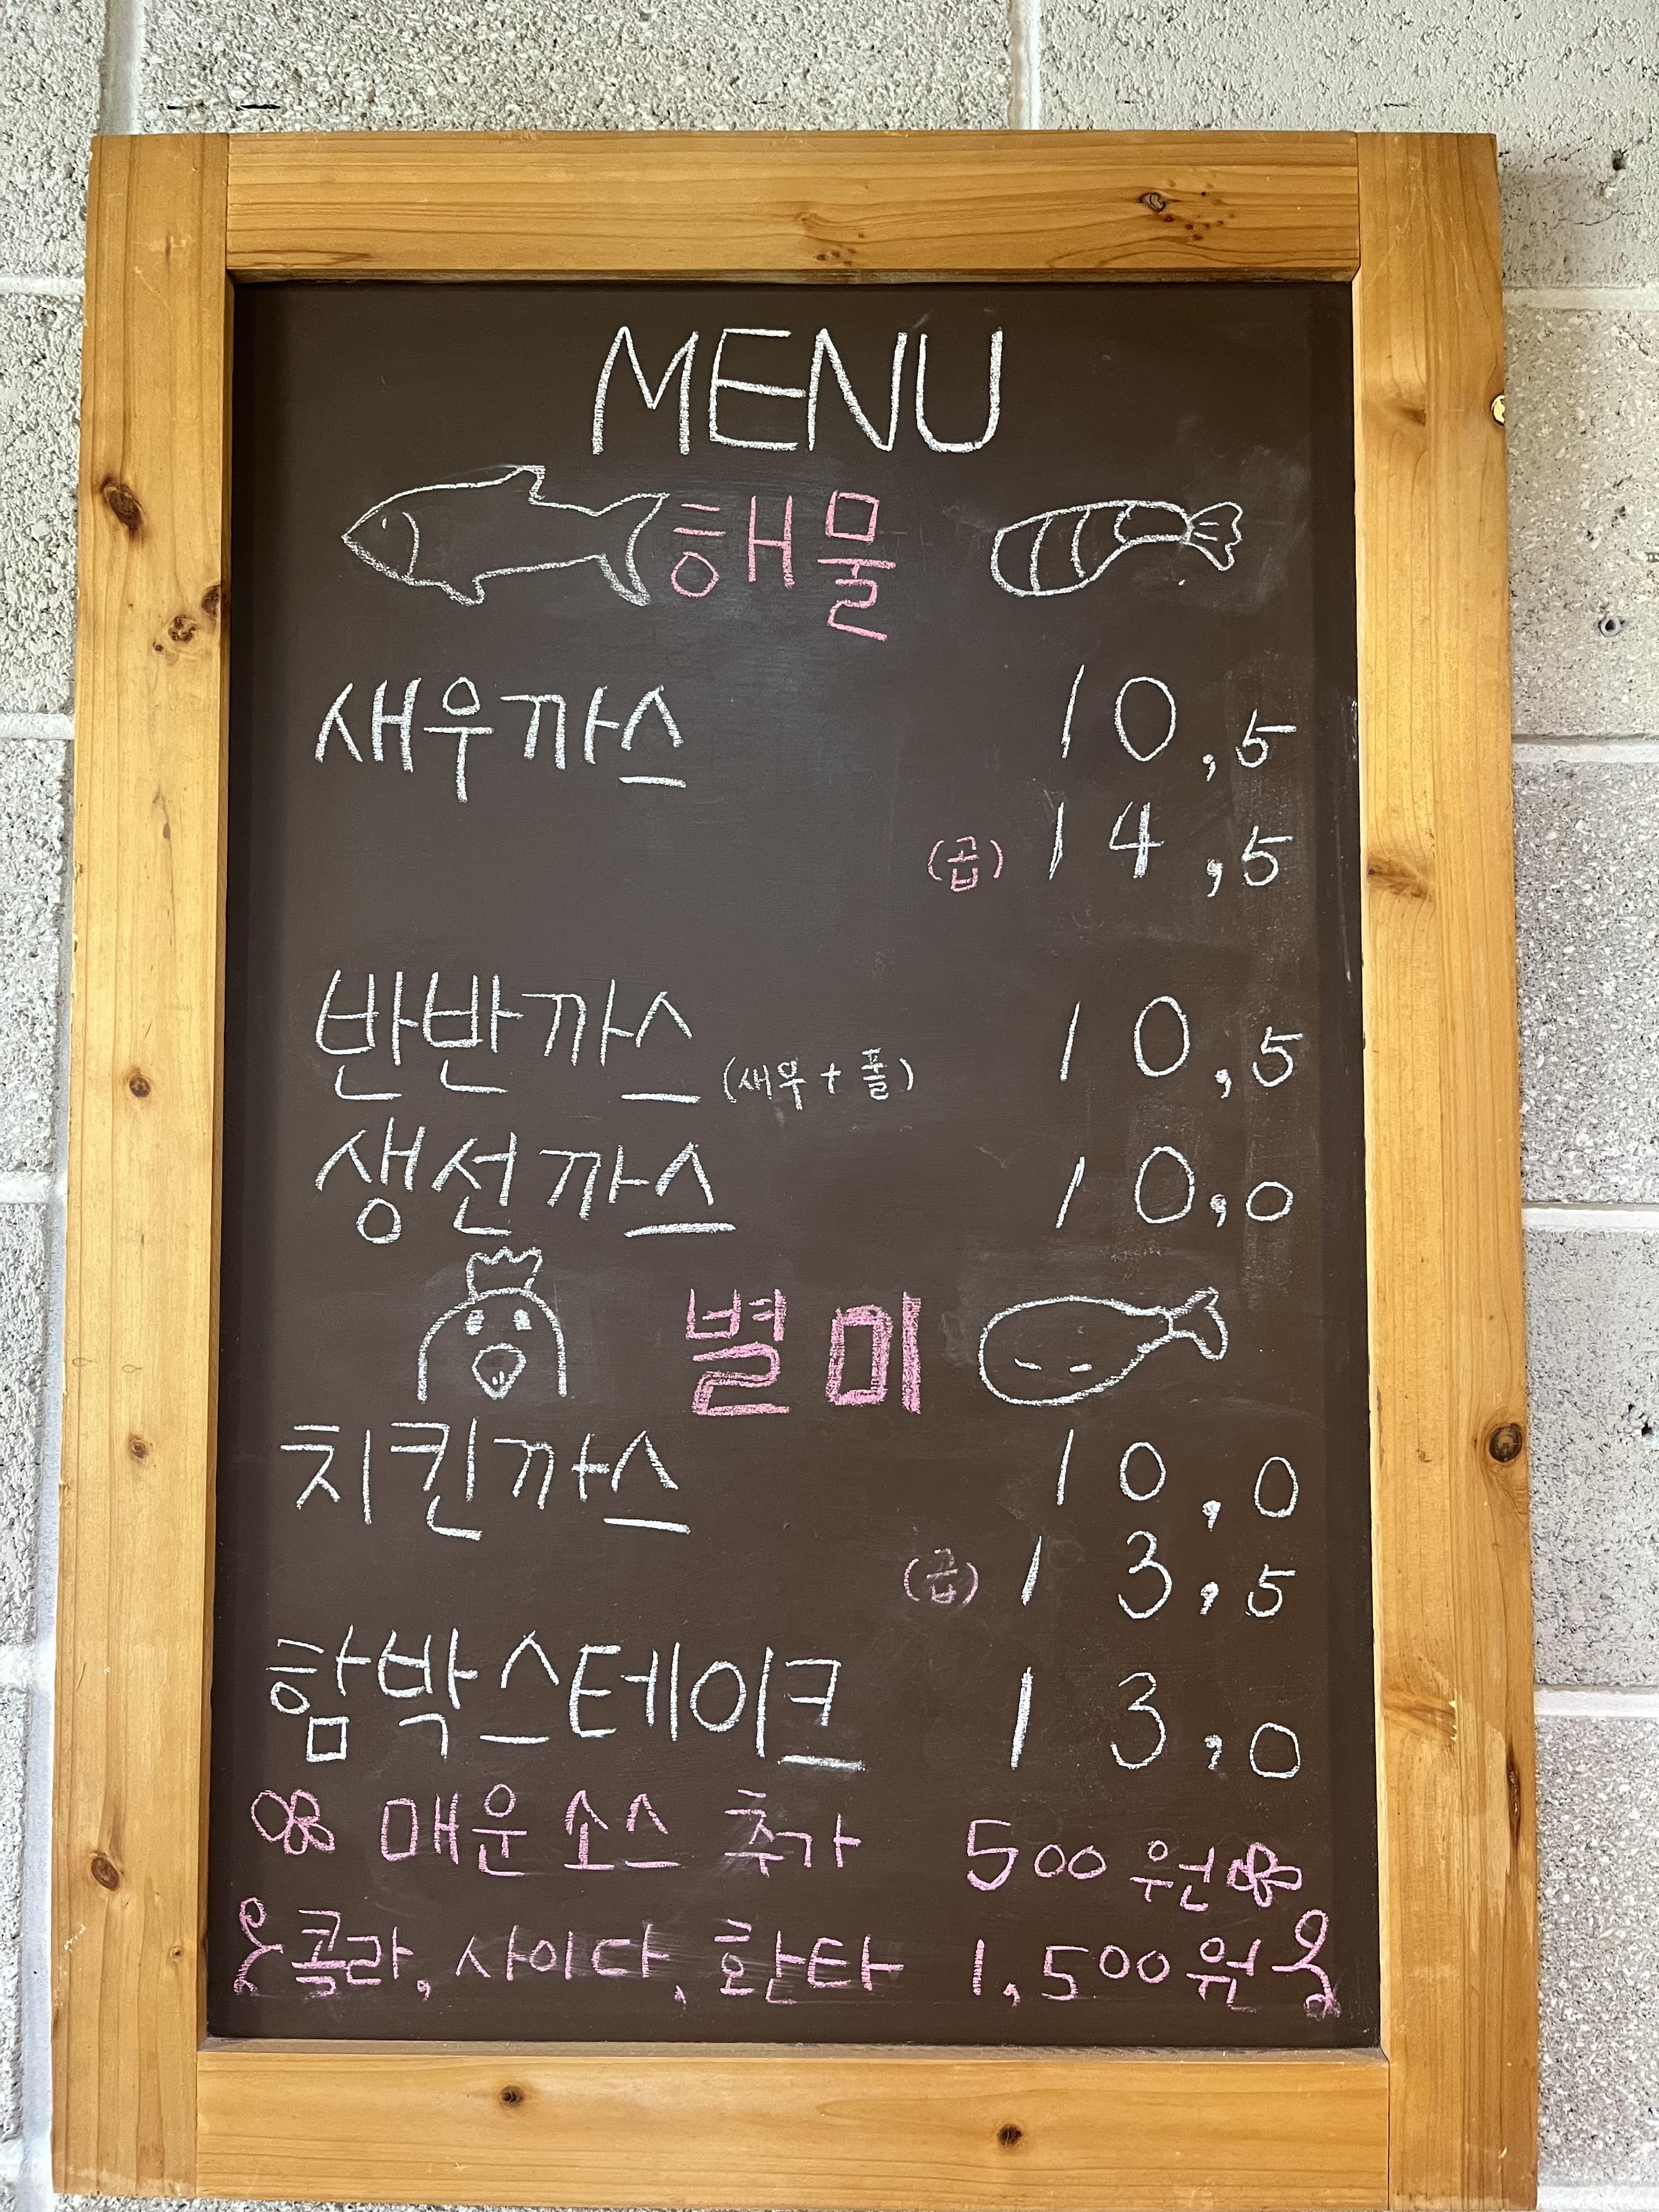 MENU
해물
새우까스 10,5
(곱) 14,5
반반까스 (새우+폴) 10,5
생선까스 10,0
별미
치킨까스 10,0
(곱) 13,5
함박스테이크 13,0
매운 소스 추가 500원
콜라, 사이다, 환타 1,500원